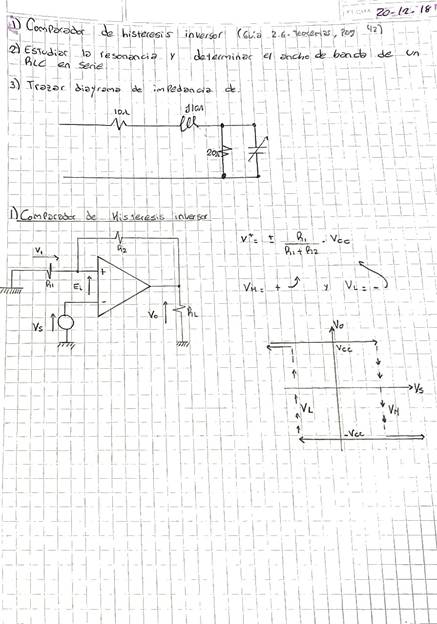 FECHA 20-12-18
1) Comparador de histeresis inversor (Guia 2.6. Teorias, pag 42)
2) Estudiar la resonancia y determinar el ancho de banda de un
RLC en serie.
3) Trazar diagrama de impedancia de.
10Ω
j10Ω
20Ω
1) Comparador de Histeresis inversor
V₁
R2
R1
EL
+
-
Vs
Vo
RL
V⁺= ± R1 / R1+R2 . Vcc
VH= + y VL= -
Vo
Vcc
Vs
VL
VH
-Vcc